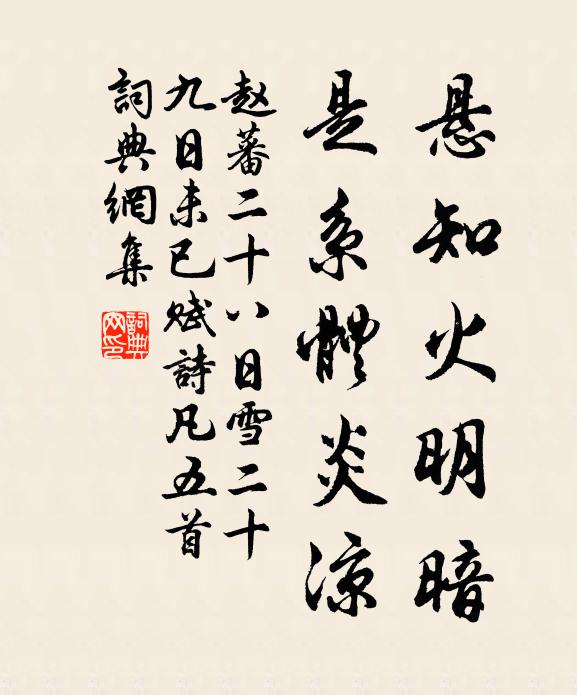 悬知火明暗
是系體炎涼
赵蕃二十八日雪二十
九日未已赋詩凡五首
詞典網集
詞典网印